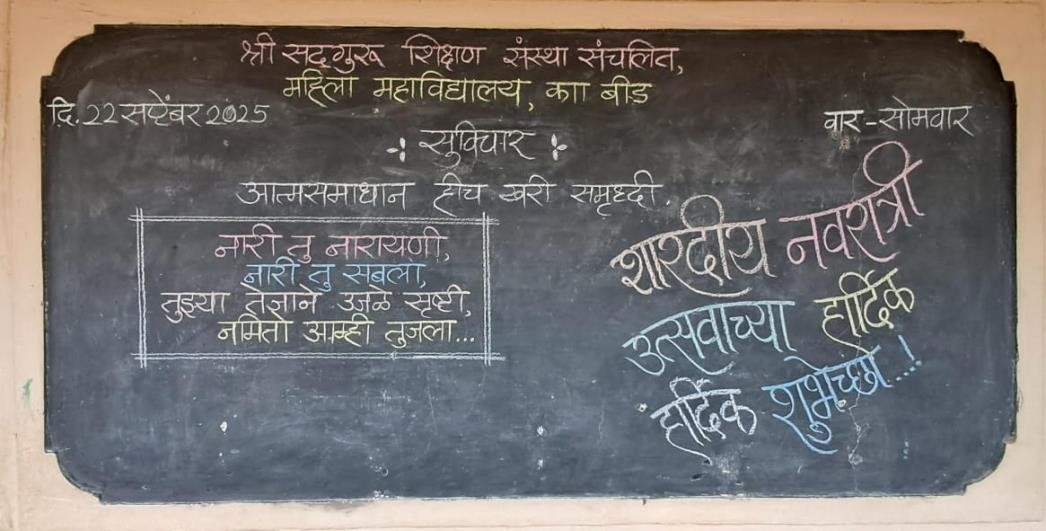 श्री सद्गुरू शिक्षण संस्था संचलित,
महिला महाविद्यालय, का बीड
दि. 22 सप्टेंबर 2025
वार - सोमवार
सुविचार
आत्मसमाधान हीच खरी समृध्दी.
नारी तु नारायणी,
नारी तु सबला,
तुझ्या तेजाने उजळे सृष्टी,
नमितो आम्ही तुजला...
शारदीय नवरात्री
उत्सवाच्या हार्दिक
हार्दिक शुभेच्छा...!